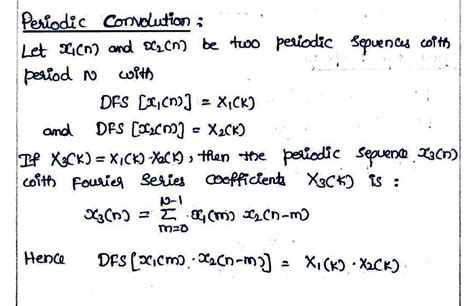 Periodic Convolution :
Let x₁(n) and x₂(n) be two periodic sequences with
period N with
DFS [x₁(n)] = X₁(K)
and DFS [x₂(n)] = X₂(K)
If X₃(K) = X₁(K) · X₂(K), then the periodic sequence x₃(n)
with Fourier Series coefficients X₃(K) is :
x₃(n) = N-1 Σ m=0 x₁(m) x₂(n-m)
Hence DFS [x₁(m) · x₂(n-m)] = X₁(K) · X₂(K)